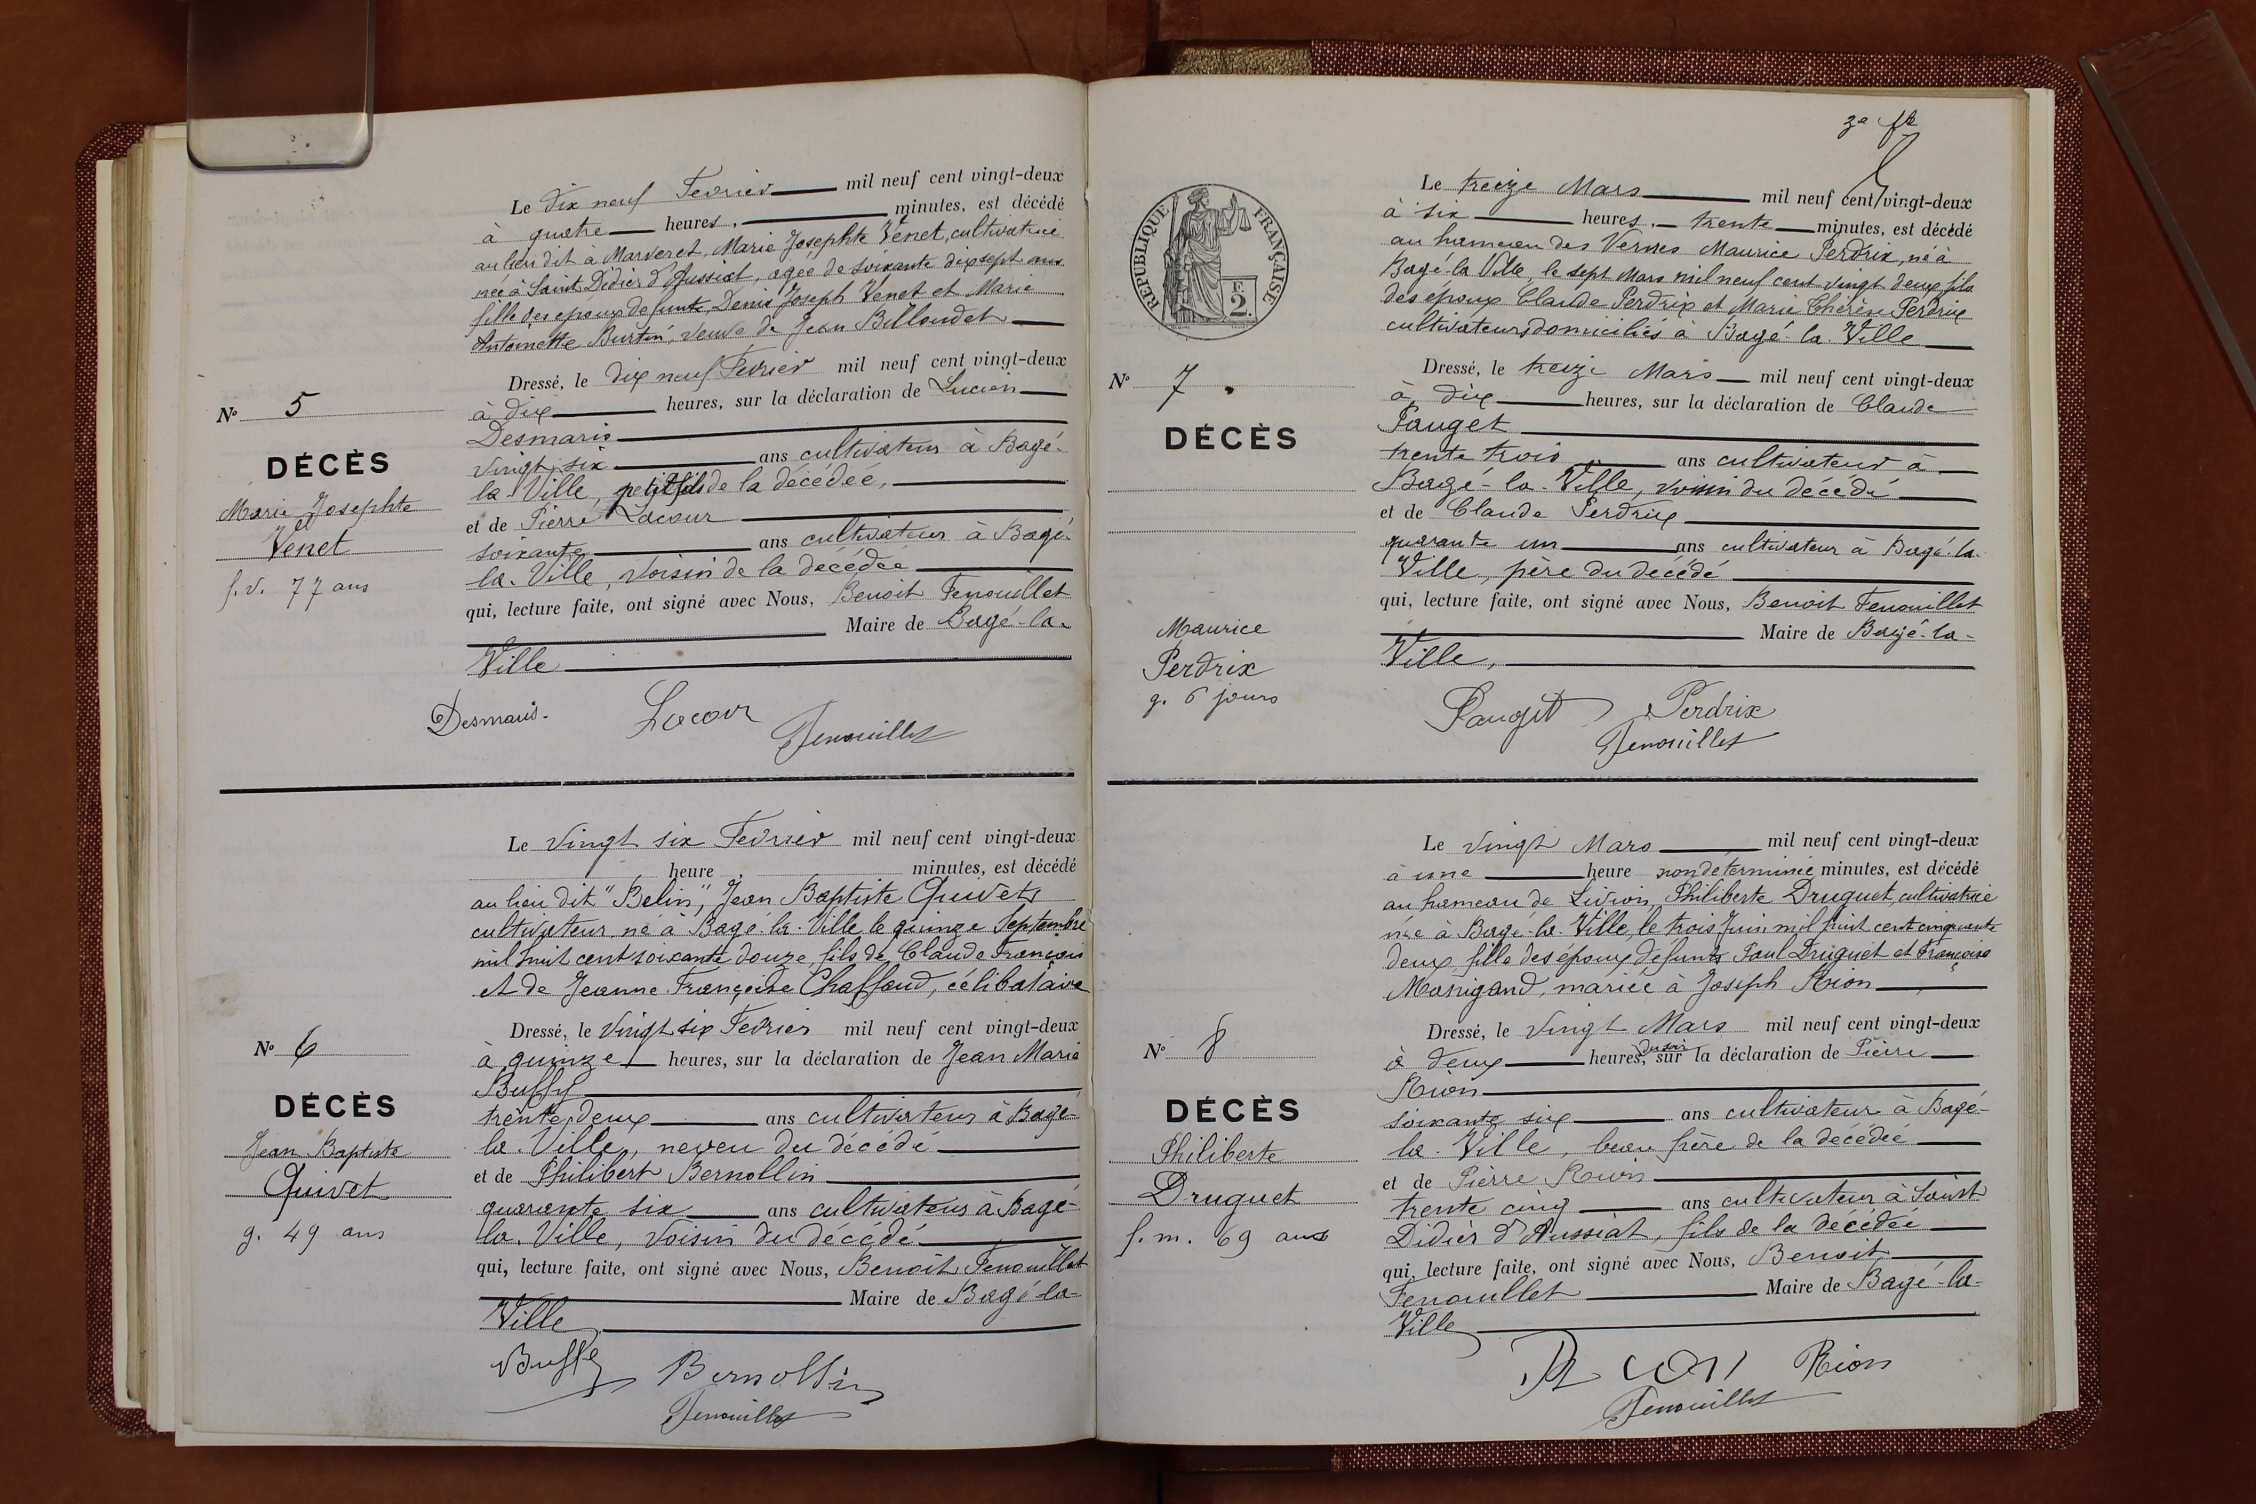 Le dix neuf Fevrier mil neuf cent vingt-deux
à quatre heures, minutes, est décédé
au lieu dit à Marveret, Marie Josephte Venet, cultivatrice
née à Saint Didier d'Aussiat, agée de soixante dix sept ans
fille des époux defunts Denis Joseph Venet et Marie
Antoinette Burtin, veuve de Jean Billoudet
Dressé, le dix neuf Fevrier mil neuf cent vingt-deux
à dix heures, sur la déclaration de Lucien
Desmaris
vingt six ans cultivateur à Bagé-
la-Ville, petit fils de la décédée,
et de Pierre Lacour
soixante ans cultivateur à Bagé-
la-Ville, voisin de la décédée
qui, lecture faite, ont signé avec Nous, Benoit Fenouillet
Maire de Bagé-la-
Ville
Desmaris. Lacour
Fenouillet
N° 5
DÉCÈS
Marie Josephte
Venet
f. v. 77 ans
Le vingt six Fevrier mil neuf cent vingt-deux
heure minutes, est décédé
au lieu dit "Belin", Jean Baptiste Quivet
cultivateur né à Bagé-la-Ville le quinze Septembre
mil huit cent soixante douze, fils de Claude François
et de Jeanne Françoise Chaffaud, célibataire
Dressé, le vingt six Fevrier mil neuf cent vingt-deux
à quinze heures, sur la déclaration de Jean Marie
Buffy
trente deux ans cultivateur à Bagé-
la-Ville, neveu du décédé
et de Philibert Bernollin
quarante six ans cultivateur à Bagé-
la-Ville, voisin du décédé
qui, lecture faite, ont signé avec Nous, Benoit Fenouillet
Maire de Bagé-la-
Ville
Buffy Bernollin
Fenouillet
N° 6
DÉCÈS
Jean Baptiste
Quivet
g. 49 ans
3e
RÉPUBLIQUE FRANÇAISE
F.
2.
Le treize Mars mil neuf cent vingt-deux
à six heures, trente minutes, est décédé
au hameau des Vernes Maurice Perdrix, né à
Bagé-la Ville, le sept Mars mil neuf cent vingt deux, fils
des époux Claude Perdrix et Marie Thérèse Perdrix
cultivateurs domiciliés à Bagé-la-Ville
Dressé, le treize Mars mil neuf cent vingt-deux
à dix heures, sur la déclaration de Claude
Pauget
trente trois ans cultivateur à
Bagé-la-Ville, voisin du décédé
et de Claude Perdrix
quarante un ans cultivateur à Bagé-la-
Ville, père du décédé
qui, lecture faite, ont signé avec Nous, Benoit Fenouillet
Maire de Bagé-la-
Ville,
Pauget Perdrix
Fenouillet
N° 7
DÉCÈS
Maurice
Perdrix
g. 6 jours
Le vingt Mars mil neuf cent vingt-deux
à une heure non déterminée minutes, est décédé
au hameau de Livion, Philiberte Druguet, cultivatrice
née à Bagé-la-Ville, le trois Juin mil huit cent cinquante
deux, fille des époux defunts Paul Druguet et Françoise
Manigand, mariée à Joseph Rion
Dressé, le vingt Mars mil neuf cent vingt-deux
à deux heures, du soir sur la déclaration de Pierre
Rion
soixante six ans cultivateur à Bagé-
la-Ville, beau frère de la décédée
et de Pierre Rion
trente cinq ans cultivateur à Saint
Didier d'Aussiat, fils de la décédée
qui, lecture faite, ont signé avec Nous, Benoit
Fenouillet Maire de Bagé-la-
Ville
Rion Rion
Fenouillet
N° 8
DÉCÈS
Philiberte
Druguet
f. m. 69 ans